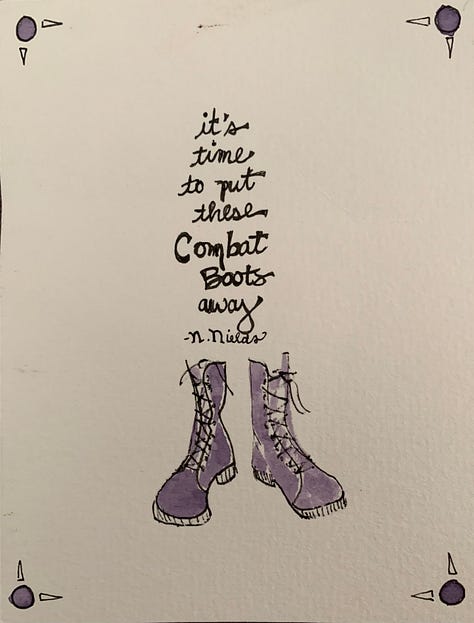 it's
time
to put
these
Combat
Boots
away
-N. Nields